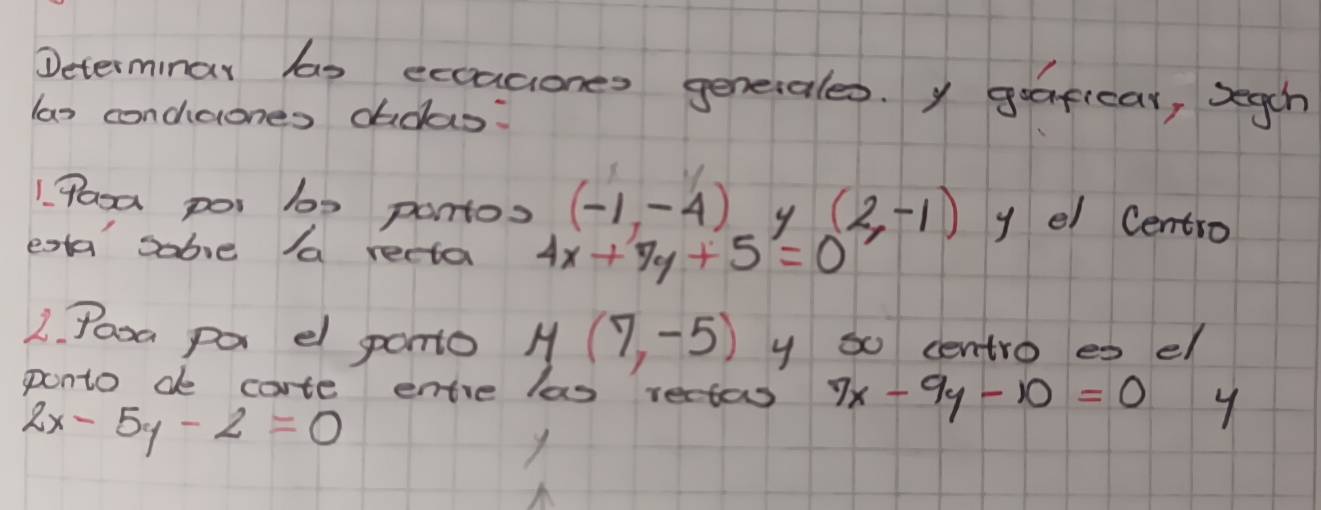 Determinar las ecuaciones generales. y gráficar, según
las condiciones dadas:
1. Pasa por los puntos (-1,-4) y (2,-1) y el Centro
está sobre la recta 4x + 7y + 5 = 0
2. Pasa por el punto M (7,-5) y su centro es el
punto de corte entre las rectas 7x - 9y - 10 = 0 y
2x - 5y - 2 = 0
y